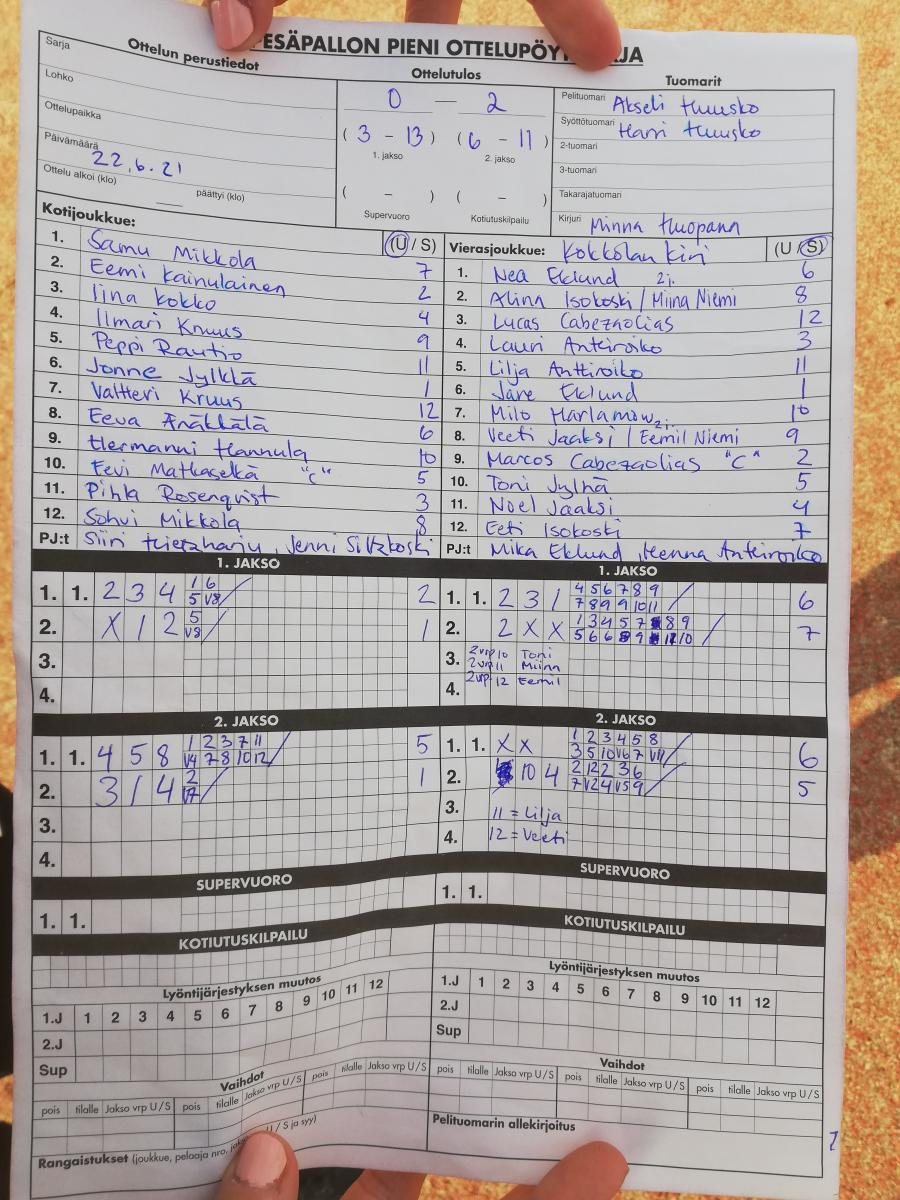 PESÄPALLON PIENI OTTELUPÖYTÄKIRJA
Ottelun perustiedot
Sarja
Lohko
Ottelupaikka
Päivämäärä 22.6.21
Ottelu alkoi (klo) päättyi (klo)
Ottelutulos
0 — 2
(3 - 13) (6 - 11)
1. jakso 2. jakso
( - ) ( - )
Supervuoro Kotiutuskilpailu
Tuomarit
Pelituomari Akseli Huusko
Syöttötuomari Harri Huusko
2-tuomari
3-tuomari
Takarajatuomari
Kirjuri Minna Huopana
Kotijoukkue: (U / S)
1. Samu Mikkola 7
2. Eemi Kainulainen 2
3. Iina Kokko 4
4. Ilmari Kruus 9
5. Peppi Rautio 11
6. Jonne Jylkkä 1
7. Valtteri Kruus 12
8. Eeva Änäkkälä 6
9. Hermanni Hannula 10
10. Eevi Matkaselkä "C" 5
11. Pihla Rosenqvist 3
12. Sohvi Mikkola 8
PJ:t Siiri Jenni
Vierasjoukkue: Kokkolan Kiri (U / S)
1. Nea Eklund 6
2. Alina Isokoski / 2j. Miina Niemi 8
3. Lucas Cabezaolias 12
4. Lauri Anttiroiko 3
5. Lilja Anttiroiko 11
6. Jare Eklund 1
7. Milo Harlamow 10
8. Veeti Jaaksi / 2j. Eemil Niemi 9
9. Marcos Cabezaolias "C" 2
10. Toni Jylhä 5
11. Noel Jaaksi 4
12. Eeti Isokoski 7
PJ:t Mika Eklund, Henna Anttiroiko
1. JAKSO
1. 1. 2 3 4 1 6 2
5 V8
2. X 1 2 5 1
V8
3.
4.
1. JAKSO
1. 1. 2 3 1 4 5 6 7 8 9 6
7 8 9 9 10 11
2. 2 X X 1 3 4 5 7 8 9 7
5 6 6 9 10
3. 2vrp 10 Toni
2vrp 11 Miina
4. 2vrp 12 Eemil
2. JAKSO
1. 1. 4 5 8 1 2 3 7 11 5
V4 7 8 10 12
2. 3 1 4 2 1
V7
3.
4.
2. JAKSO
1. 1. X X 1 2 3 4 5 8 6
3 5 10 V6 7 V11
2. 10 4 2 12 2 3 6 5
7 V2 4 V5 9
3. 11 = Lilja
4. 12 = Veeti
SUPERVUORO
1. 1.
SUPERVUORO
1. 1.
KOTIUTUSKILPAILU
KOTIUTUSKILPAILU
Lyöntijärjestyksen muutos
1.J 1 2 3 4 5 6 7 8 9 10 11 12
2.J
Sup
Lyöntijärjestyksen muutos
1.J 1 2 3 4 5 6 7 8 9 10 11 12
2.J
Sup
Vaihdot
pois tilalle Jakso vrp U / S pois tilalle Jakso vrp U / S pois tilalle Jakso vrp U / S
Vaihdot
pois tilalle Jakso vrp U / S pois tilalle Jakso vrp U / S pois tilalle Jakso vrp U / S
Rangaistukset (joukkue, pelaaja nro, U / S ja syy)
Pelituomarin allekirjoitus